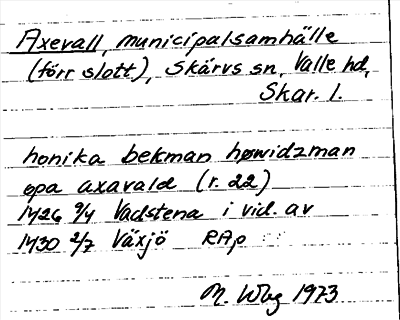 Axevall, municipalsamhälle
(förr slott), Skärvs sn, Valle hd,
Skar. l.
honika bekman høwidzman
opa axavald (r. 22)
1426 9/4 Vadstena i vid. av
1430 2/7 Växjö RAp
M. Wbg 1973